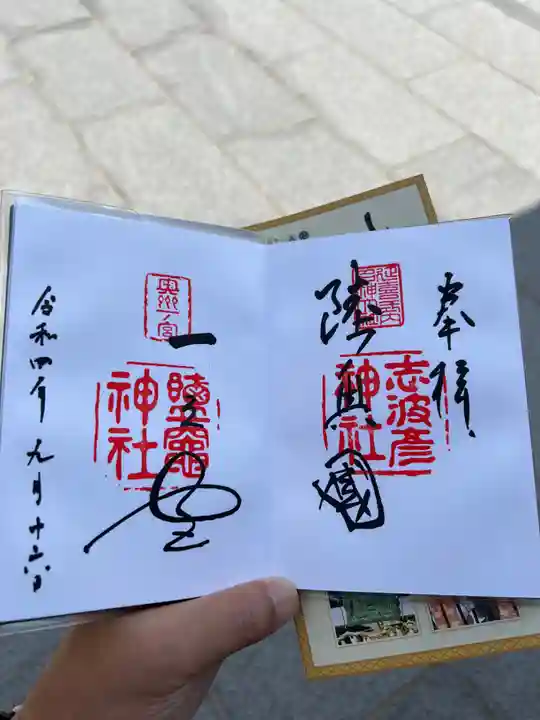 奉拝
陸奥國
志波彦
神社
一之宮
奥州一宮
鹽竈
神社
令和四年九月十六日